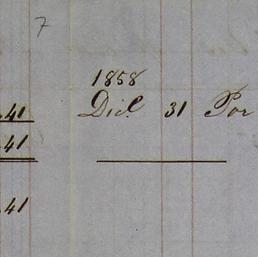 7
1858
.41 Dice 31 Por
.41
.41